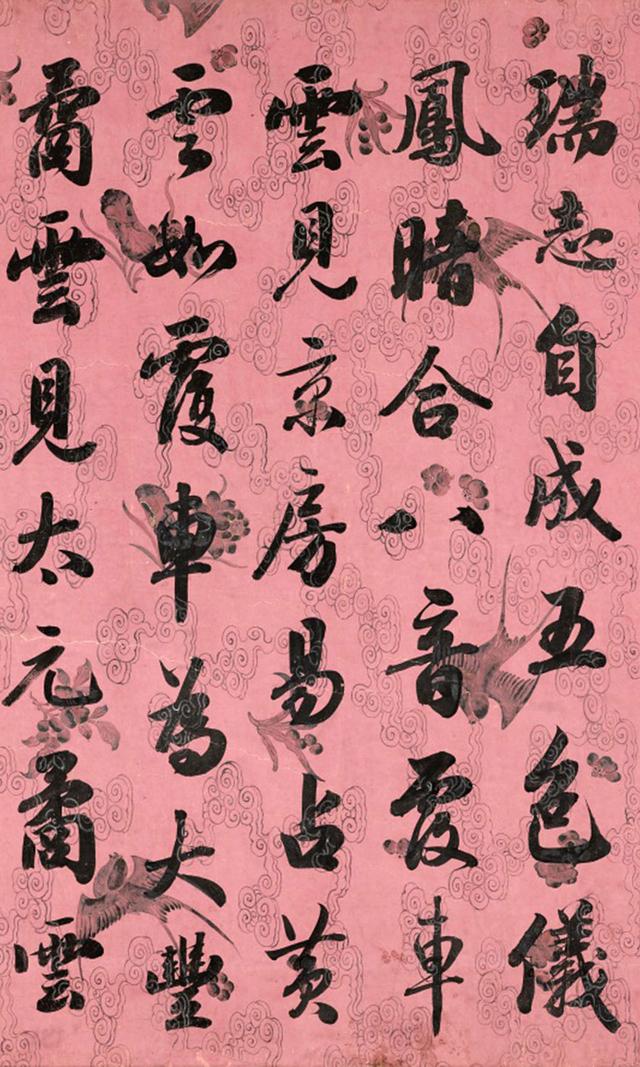 瑞志自成五色儀
鳳暗合八音覆車
雲見京房易占黃
雲如覆車為大豐
矞雲見太元矞雲